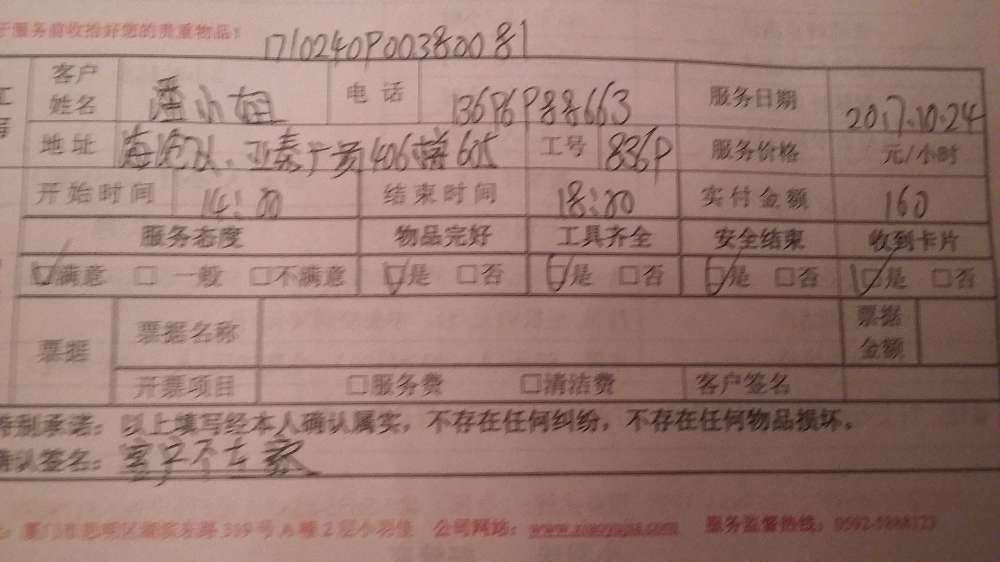 于服务前收拾好您的贵重物品！
1710240900380081
客户姓名 潘小姐 电话 13696988663 服务日期 2017.10.24
地址 海沧 亚泰广 406 605 工号 8369 服务价格 元/小时
开始时间 14:00 结束时间 18:00 实付金额 160
服务态度 物品完好 工具齐全 安全结束 收到卡片
☑满意 □一般 □不满意 ☑是 □否 ☑是 □否 ☑是 □否 ☑是 □否
票据 票据名称 票据金额
开票项目 □服务费 □清洁费 客户签名
特别承诺：以上填写经本人确认属实，不存在任何纠纷，不存在任何物品损坏。
确认签名：客户不在家
厦门市思明区湖滨东路319号A幢2层小羽佳 公司网站： 服务监督热线：